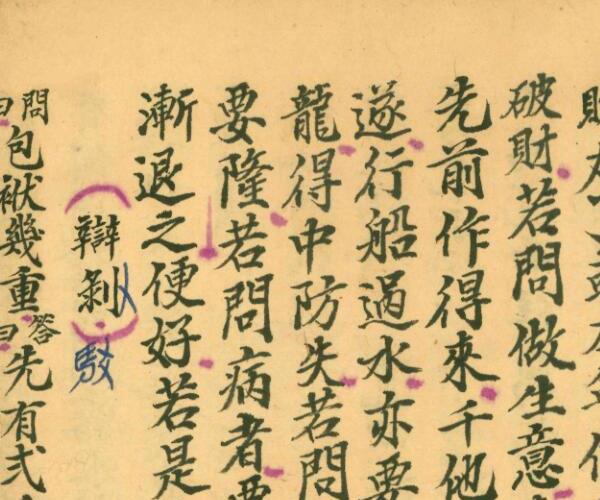 破財若問做生意
先前作得來千他
遂行船過水亦要
龍得中防失若問
要隆若問病者要
漸退之便好若是
辯剝
駁
問曰包袱幾重答曰先有弍